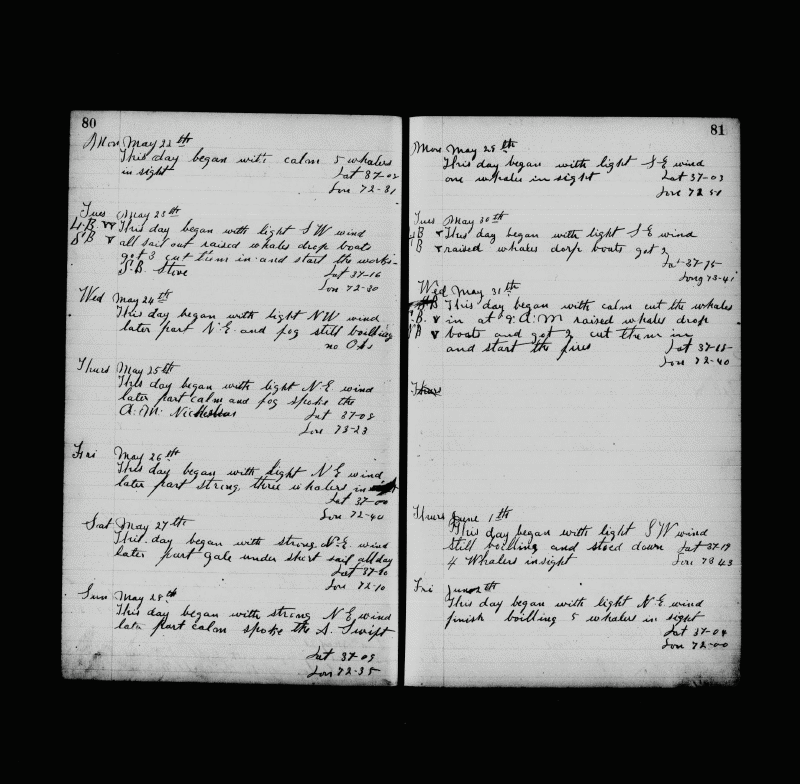 80
Mon May 22th
This day began with calm 5 whalers
in sight Lat 37-02
Lon 72-31
Tues May 23th
4.B This day began with light S W wind
S B all sail out raised whales drop boats
got 3 cut them in and start the works
S.B. Stove Lat 37-16
Lon 72-30
Wed May 24th
This day began with light N W wind
later part N.E. and fog still boilling
no Obs
Thurs May 25th
This day began with light N.E. wind
later part calm and fog spoke the
A. M. Nicholson Lat 37-08
Lon 73-23
Fri May 26th
This day began with light N E wind
later part strong, three whalers in
Lat 37-00
Lon 72-40
Sat May 27th
This day began with strong N.E. wind
later part gale under short sail all day
Lat 37-10
Lon 72-10
Sun May 28th
This day began with strong N E wind
late part calm spoke the A. Swift
Lat 37-05
Lon 72-35
81
Mon May 29th
This day began with light S-E wind
one whaler in sight Lat 37-03
Lon 72 51
Tues May 30th
B This day began with light S-E wind
B raised whales dorp boats got 2
Lat 37-15
Long 73-41
Wed May 31th
B This day began with calm cut the whales
B. in at 9. A. M raised whales drop
B boats and got 2 cut them in
and start the fires Lat 37-18
Lon 72-40
Thurs
Thurs June 1th
This day began with light S W wind
still boilling and stoed down Lat 37-19
4 Whalers insight Lon 73 43
Fri June 2th
This day began with light N.E. wind
finish boilling 5 whalers in sight
Lat 37-04
Lon 72-00